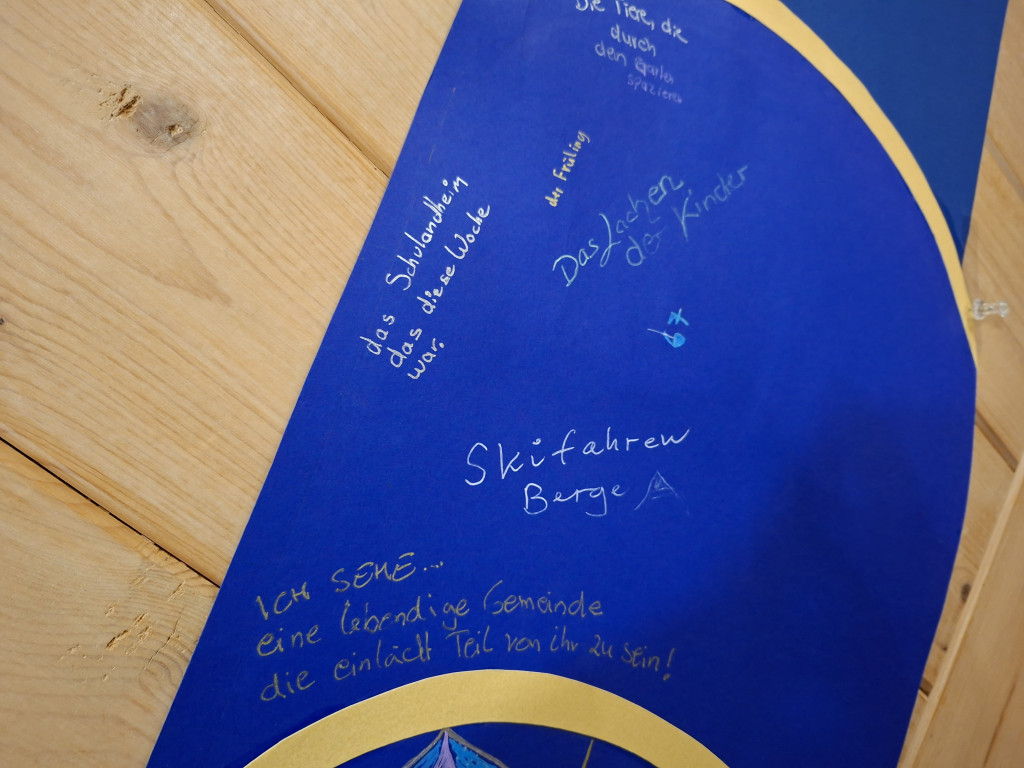 Die Tiere, die
durch
den Garten
spazieren
der Früling
das Schulandheim
das diese Woche
war.
Das Lachen
der Kinder
67
Skifahren
Berge
ICH SEHE...
eine lebendige Gemeinde
die einlädt Teil von ihr zu sein!